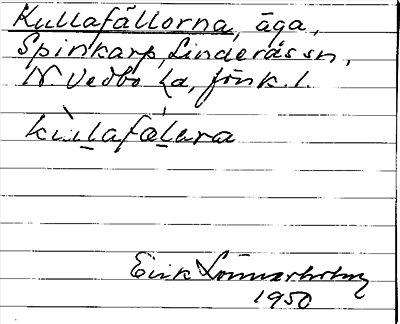 Kullafällorna, äga,
Spinkarp, Linderås sn,
N. Vedbo hd, Jönk. l.
kullafälara
Erik Lönnerholm
1950